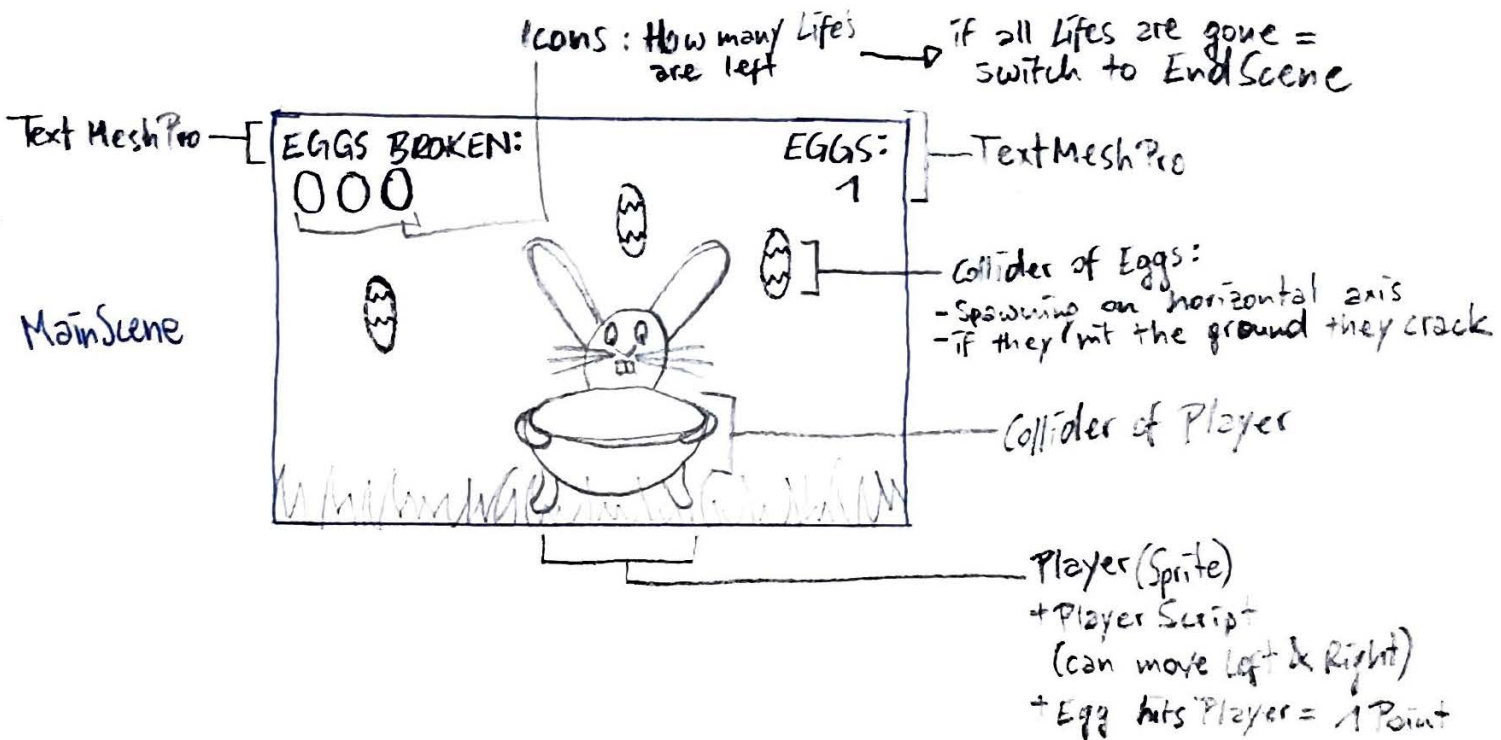 Icons: How many Lifes
are left
if all Lifes are gone =
switch to EndScene
TextMeshPro
EGGS BROKEN:
EGGS:
1
TextMeshPro
MainScene
Collider of Eggs:
- Spawning on horizontal axis
- if they hit the ground they crack
Collider of Player
Player (Sprite)
+ Player Script
(can move Left & Right)
+ Egg hits Player = 1 Point